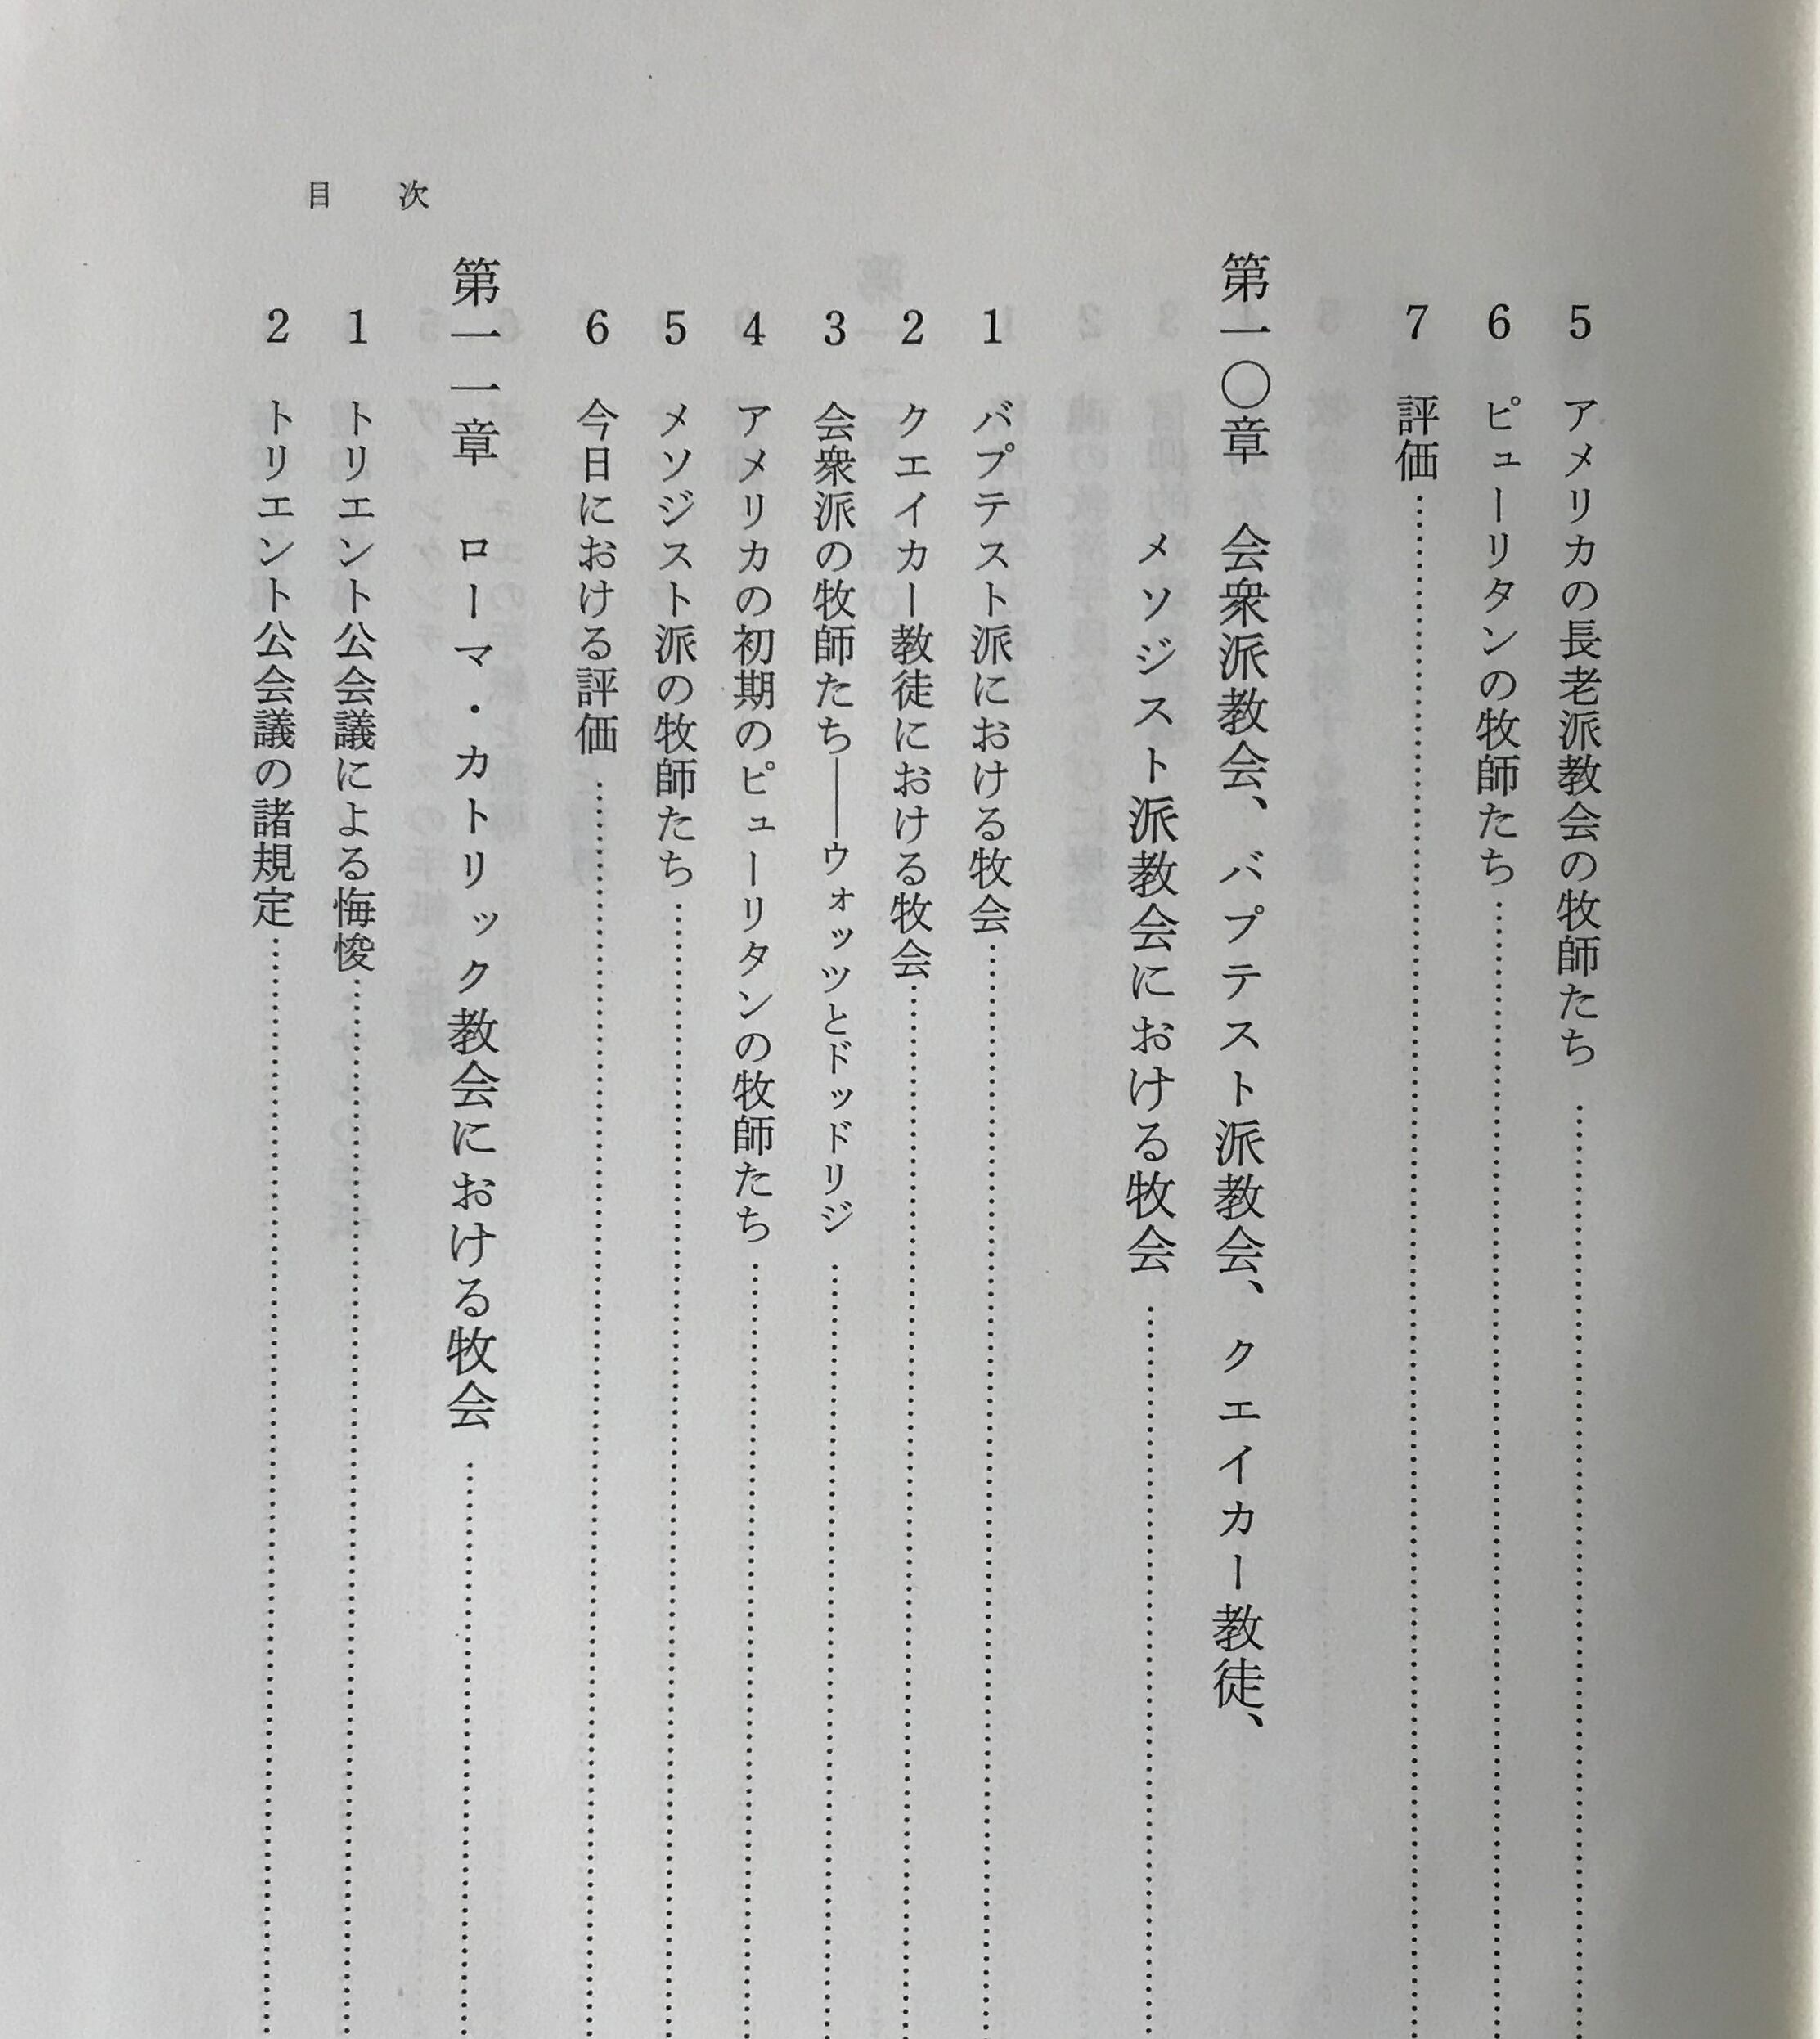 目次
5 アメリカの長老派教会の牧師たち
6 ピューリタンの牧師たち
7 評価
第一〇章 会衆派教会、バプテスト派教会、クエイカー教徒、
メソジスト派教会における牧会
1 バプテスト派における牧会
2 クエイカー教徒における牧会
3 会衆派の牧師たち――ウォッツとドッドリジ
4 アメリカの初期のピューリタンの牧師たち
5 メソジスト派の牧師たち
6 今日における評価
第一一章 ローマ・カトリック教会における牧会
1 トリエント公会議による悔悛
2 トリエント公会議の諸規定